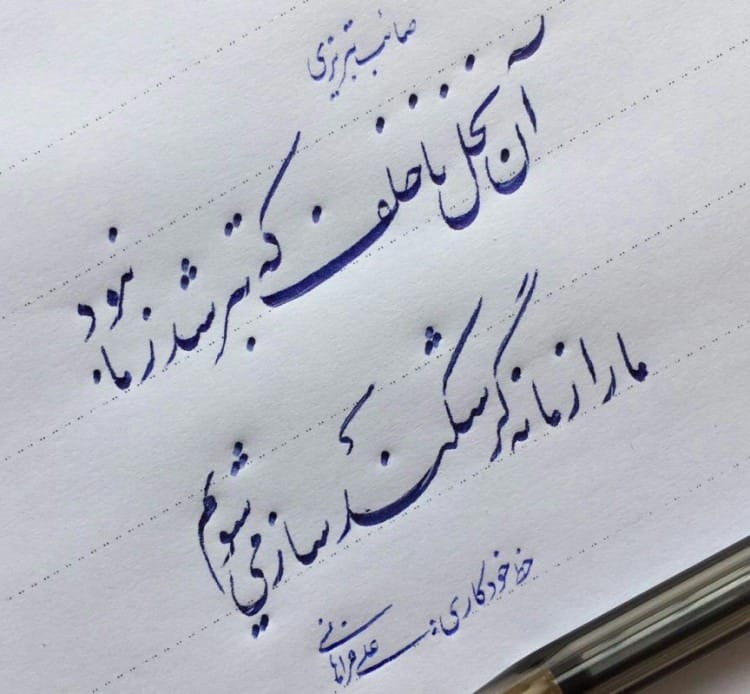 صائب تبریزی
آن نخل ناخلف که تبر شد ز ما نبود
ما را زمانه گر شکند ساز می شویم
خط خودکاری: علی فراهانی